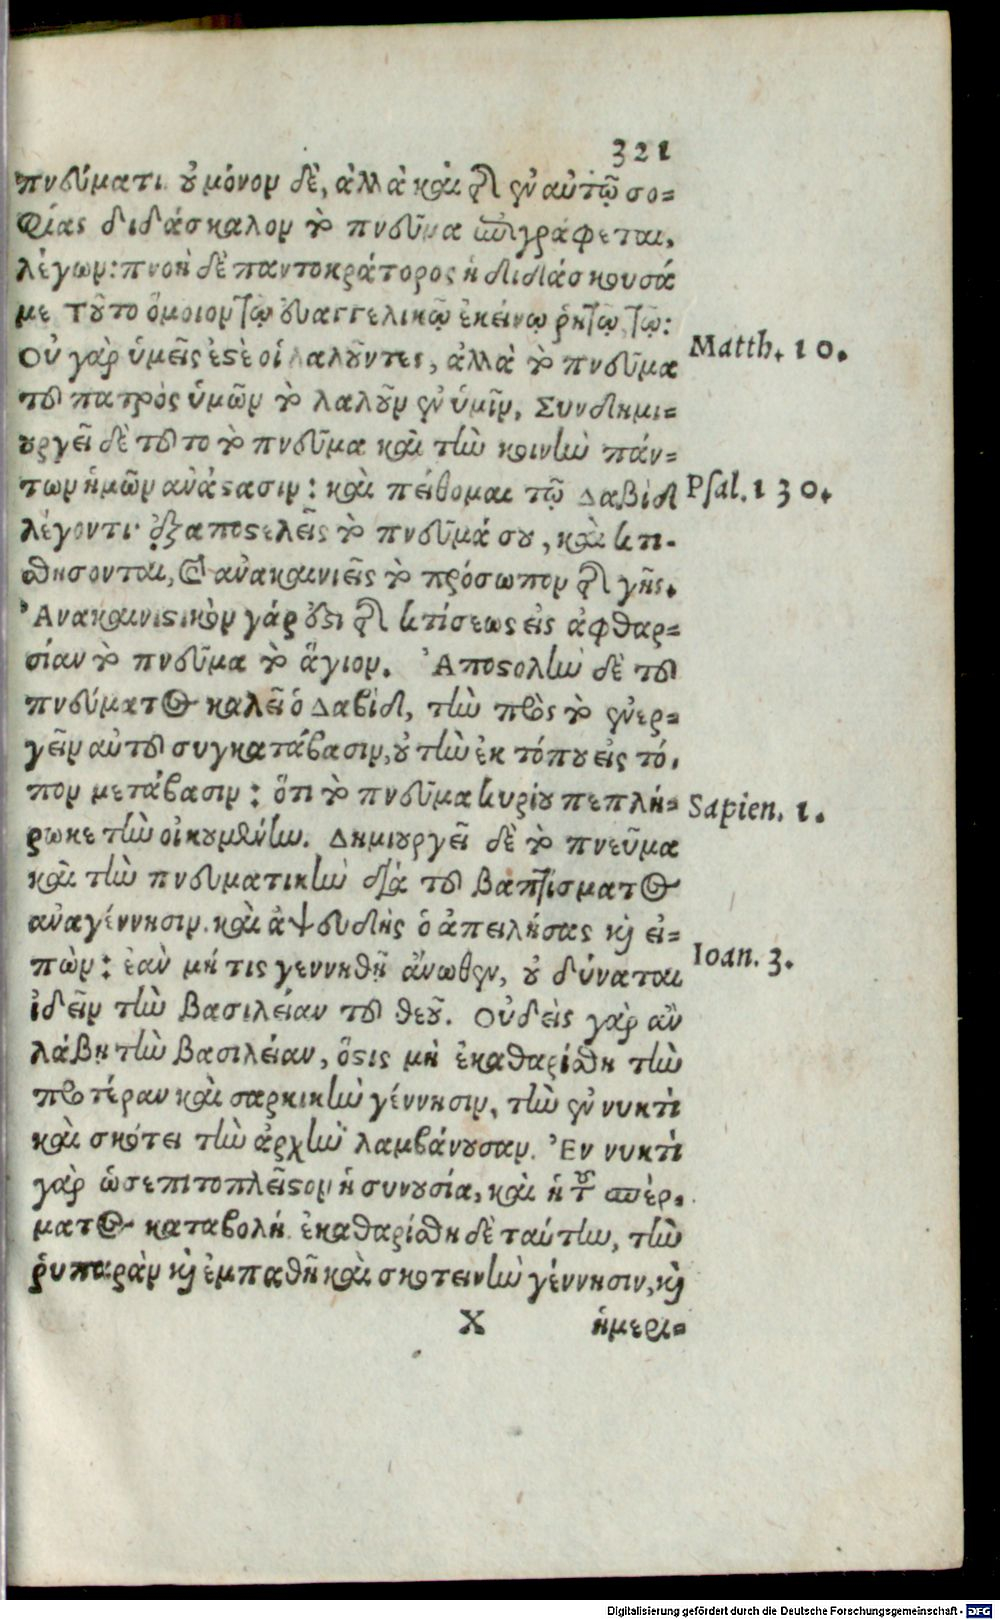 321
πνεύματι. οὐ μόνον δὲ, ἀλλὰ καὶ τῆς ἐν αὐτῷ σο-
φίας διδάσκαλον τὸ πνεῦμα ἐπιγράφεται,
λέγων: πνοὴ δὲ παντοκράτορος ἡ διδάσκουσά
με τοῦτο ὅμοιον τῷ εὐαγγελικῷ ἐκείνῳ ῥητῷ, τῷ:
Οὐ γὰρ ὑμεῖς ἐστὲ οἱ λαλοῦντες, ἀλλὰ τὸ πνεῦμα
Matth. 10.
τοῦ πατρὸς ὑμῶν τὸ λαλοῦν ἐν ὑμῖν. Συνδημι-
ουργεῖ δὲ τοῦτο τὸ πνεῦμα καὶ τὴν κοινὴν πάν-
των ἡμῶν ἀνάστασιν: καὶ πείθομαι τῷ Δαβὶδ
Psal. 130.
λέγοντι· ἐξαποστελεῖς τὸ πνεῦμά σου, καὶ κτι-
σθήσονται, καὶ ἀνακαινιεῖς τὸ πρόσωπον τῆς γῆς.
Ἀνακαινιστικὸν γάρ ἐστι τῆς κτίσεως εἰς ἀφθαρ-
σίαν τὸ πνεῦμα τὸ ἅγιον. Ἀποστολὴν δὲ τοῦ
πνεύματος καλεῖ ὁ Δαβὶδ, τὴν πρὸς τὸ ἐνερ-
γεῖν αὐτοῦ συγκατάβασιν, οὐ τὴν ἐκ τόπου εἰς τό-
πον μετάβασιν: ὅτι τὸ πνεῦμα κυρίου πεπλή-
Sapien. 1.
ρωκε τὴν οἰκουμένην. Δημιουργεῖ δὲ τὸ πνεῦμα
καὶ τὴν πνευματικὴν διὰ τοῦ βαπτίσματος
ἀναγέννησιν. καὶ ἀψευδὴς ὁ ἀπειλήσας καὶ εἰ-
πών: ἐὰν μή τις γεννηθῇ ἄνωθεν, οὐ δύναται
Ioan. 3.
ἰδεῖν τὴν βασιλείαν τοῦ θεοῦ. Οὐδεὶς γὰρ ἂν
λάβῃ τὴν βασιλείαν, ὅστις μὴ ἐκαθαρίσθη τὴν
προτέραν καὶ σαρκικὴν γέννησιν, τὴν ἐν νυκτὶ
καὶ σκότει τὴν ἀρχὴν λαμβάνουσαν. Ἐν νυκτὶ
γὰρ ὡσεπιτοπλεῖστον ἡ συνουσία, καὶ ἡ τοῦ σπέρ-
ματος καταβολή. ἐκαθαρίσθη δὲ ταύτην, τὴν
ῥυπαρὰν καὶ ἐμπαθῆ καὶ σκοτεινὴν γέννησιν, καὶ
X ἡμερι-
Digitalisierung gefördert durch die Deutsche Forschungsgemeinschaft - DFG